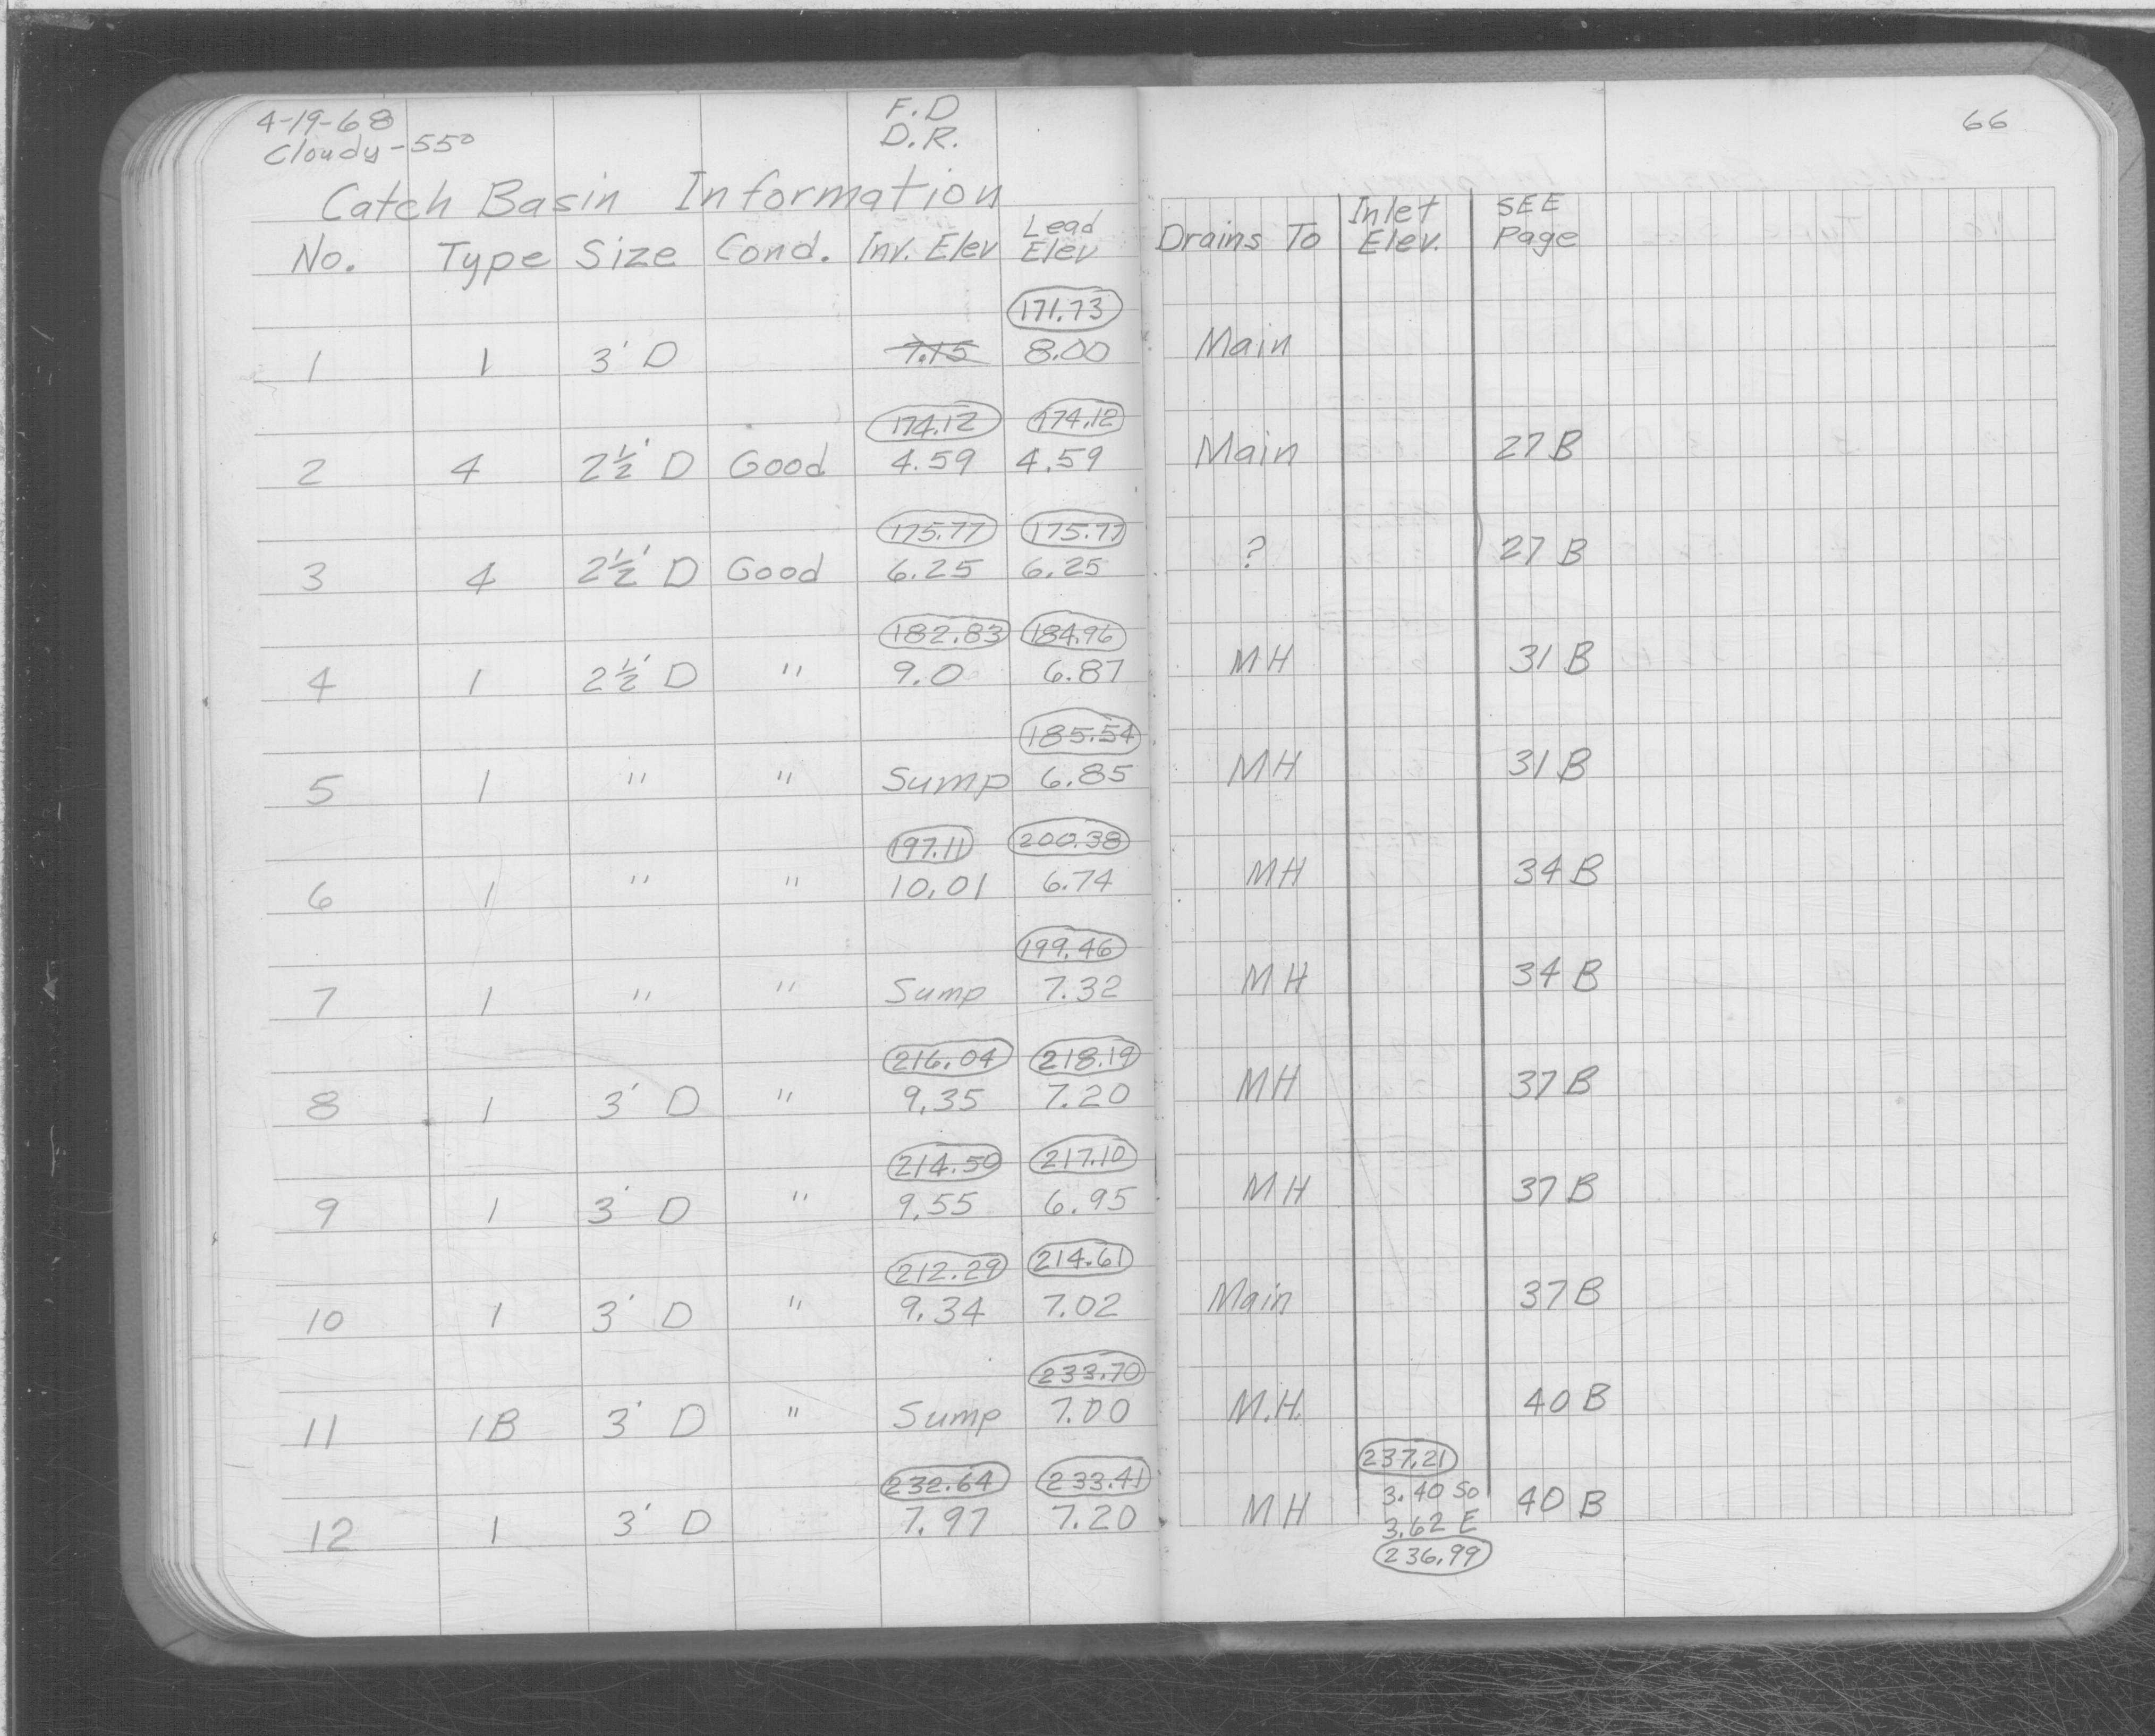 4-19-68
Cloudy-55°
F.D
D.R.
66
Catch Basin Information
No. Type Size Cond. Inv. Elev Lead Elev Drains To Inlet Elev. SEE Page
171.73
1 1 3' D 7.15 8.00 Main
174.12 174.12
2 4 2½' D Good 4.59 4.59 Main 27B
175.77 175.77
3 4 2½' D Good 6.25 6.25 ? 27 B
182.83 184.96
4 1 2½' D " 9.0 6.87 MH 31 B
185.54
5 1 " " Sump 6.85 MH 31 B
197.11 200.38
6 1 " " 10.01 6.74 MH 34 B
199.46
7 1 " " Sump 7.32 MH 34 B
216.04 218.19
8 1 3' D " 9.35 7.20 MH 37 B
214.50 217.10
9 1 3' D " 9.55 6.95 MH 37 B
212.29 214.61
10 1 3' D " 9.34 7.02 Main 37 B
233.70
11 1B 3' D " Sump 7.00 M.H. 40 B
232.64 233.41 237.21
12 1 3' D 7.97 7.20 MH 3.40 So 40 B
3.62 E
236.99